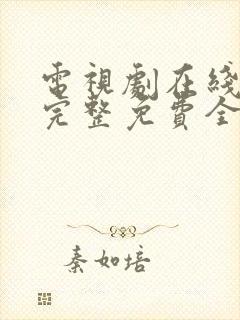 電視劇在綫
完整免費全
秦如培